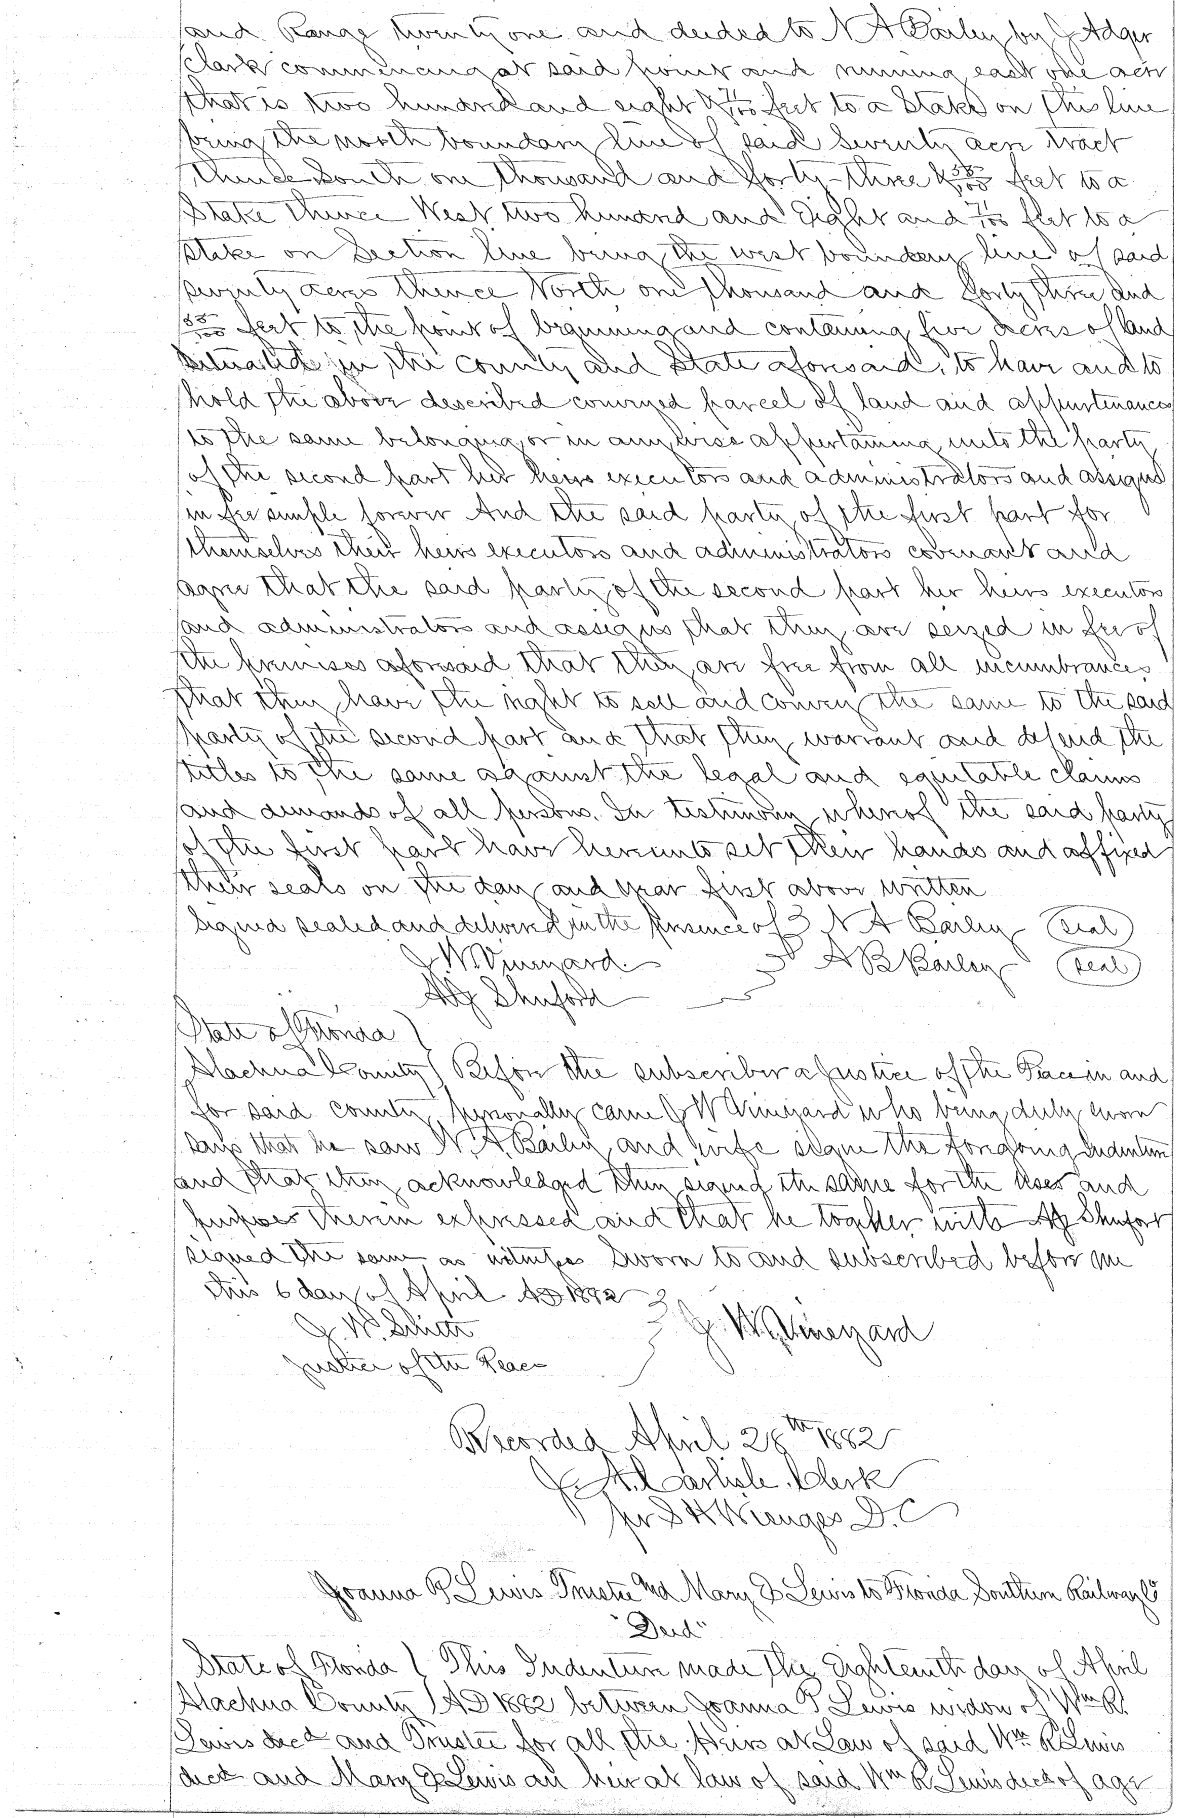 and Range twenty one and deeded to N A Bailey by J Adger
Clark commencing at said point and running east one acre
that is two hundred and eight & 71/100 feet to a Stake on this line
being the north boundary line of said Seventy acre tract
thence South one thousand and forty-three & 55/100 feet to a
Stake thence West two hundred and Eight and 71/100 feet to a
stake on Section line being the west boundary line of said
seventy acres thence North one thousand and forty three and
55/100 feet to the point of beginning and containing five acres of land
situated in the County and State aforesaid, to have and to
hold the above described conveyed parcel of land and appurtenances
to the same belonging or in any wise appertaining unto the party
of the second part her heirs executors and administrators and assigns
in fee simple forever And the said party of the first part for
themselves their heirs executors and administrators covenant and
agree that the said party of the second part her heirs executors
and administrators and assigns that they are seized in fee of
the premises aforesaid that they are free from all incumbrances
that they have the right to sell and convey the same to the said
party of the second part and that they warrant and defend the
titles to the same against the legal and equitable claims
and demands of all persons. In testimony whereof the said party
of the first part have hereunto set their hands and affixed
their seals on the day and year first above written
Signed sealed and delivered in the presence of N A Bailey (seal)
J W Vineyard A B Bailey (seal)
Shuford
State of Florida
Alachua County Before the subscriber a Justice of the Peace in and
for said county personally came J W Vineyard who being duly sworn
says that he saw N. A. Bailey and wife signe the forgoing Indenture
and that they acknowledged they signed the same for the uses and
purposes therein expressed and that he together with Shufort
signed the same as witness Sworn to and subscribed before me
this 6 day of April AD 1882
J. W. Smith J. W. Vineyard
Justice of the Peace
Recorded April 28th 1882
J. A. Carlisle, Clerk
pr S H Wienges D. C
Joanna P Lewis Trustee and Mary E Lewis to Florida Southern Railway Co
"Deed"
State of Florida ( This Indenture made the Eighteenth day of April
Alachua County ) AD 1882 between Joanna P Lewis widow of Wm R
Lewis decd and Trustee for all the Heirs at Law of said Wm R Lewis
decd and Mary E Lewis an heir at law of said Wm R Lewis decd of age